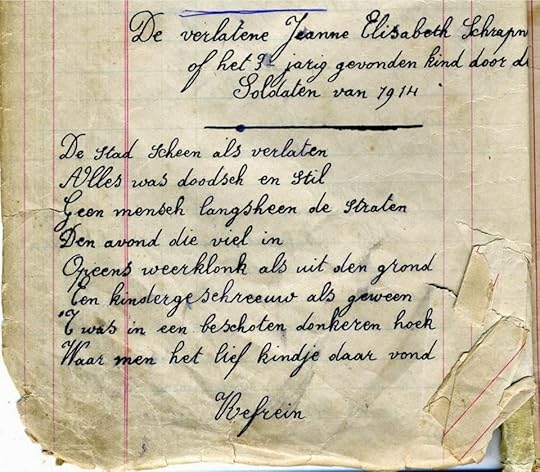 De verlatene Jeanne Elisabeth Schrapn
of het 9- jarig gevonden kind door d
Soldaten van 1914
De Stad Scheen als verlaten
Alles was doodsch en Stil
Geen mensch langsheen de Straten
Den avond die viel in
Opeens weerklonk als uit den grond
Een kindergeschreeuw als geween
'T was in een beschoten donkeren hoek
Waar men het lief kindje daar vond
Refrein